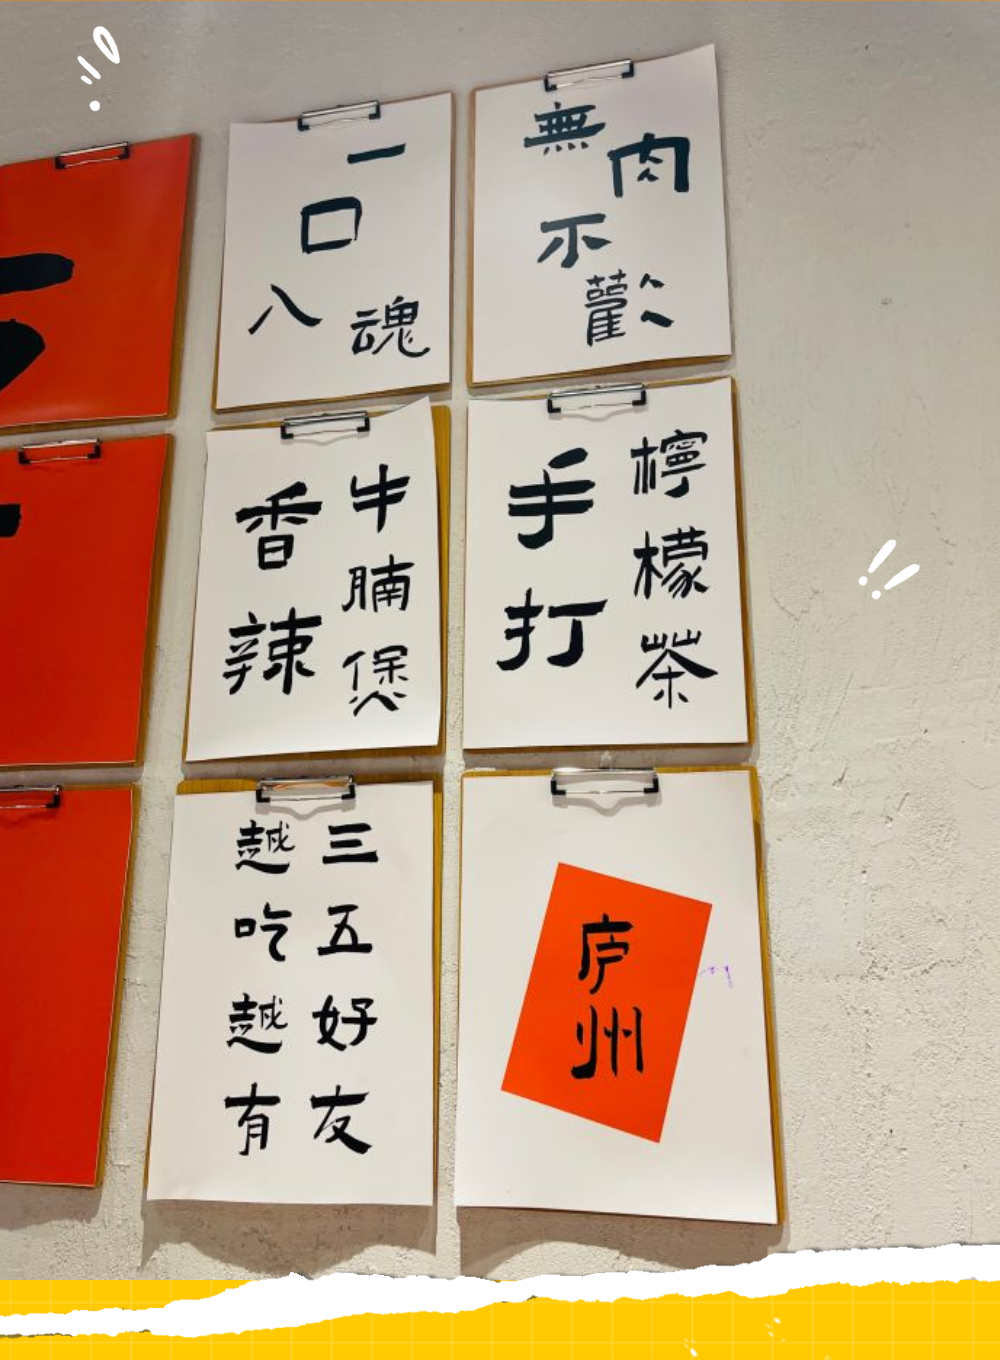 一口八魂
無肉不歡
香辣
牛腩煲
手打
檸檬茶
三五好友
越吃越有
庐州